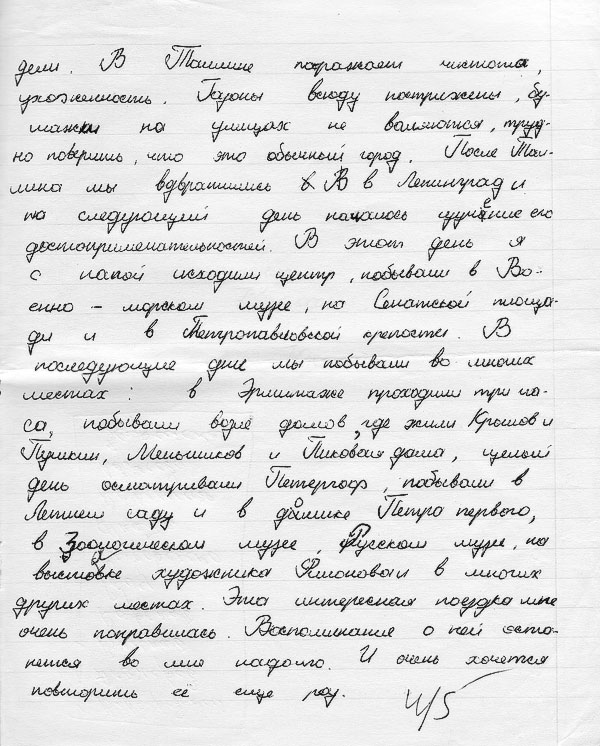 дели. В Таллине поражает чистота,
ухоженность. Газоны всюду пострижены, бу-
мажки на улицах не валяются, труд-
но поверить, что это обычный город. После Тал-
лина мы вдвратились в В в Ленинград и
на следующий день началось изучение его
достопримечательностей. В этот день я
с папой исходили центр, побывали в Во-
енно - морском музее, на Сенатской площа-
ди и в Петропавловской крепости. В
последующие дни мы побывали во многих
местах: в Эрмитаже проходили три ча-
са, побывали возле домов, где жили Крылов и
Пушкин, Меньшиков и Пиковая дама, целый
день осматривали Петергоф, побывали в
Летнем саду и в домике Петра первого,
в Зоологическом музее, Русском музее, на
выставке художника Филонова и в многих
других местах. Эта интересная поездка мне
очень понравилась. Воспоминание о ней оста-
нется во мне надолго. И очень хочется
повторить её еще раз.
4/5